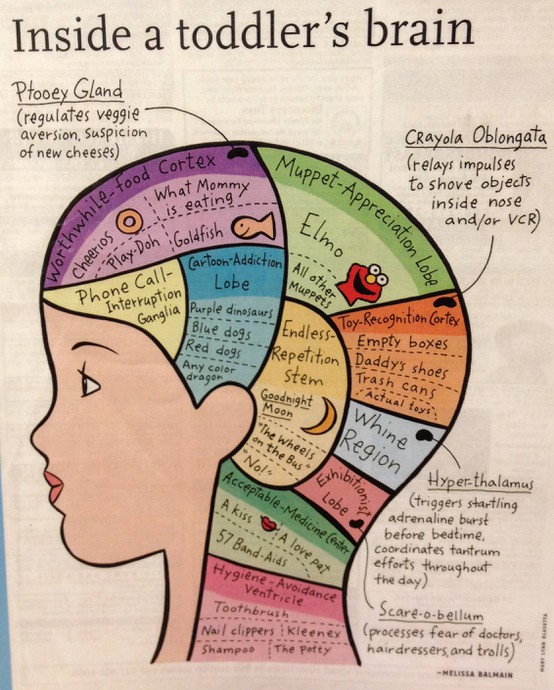 Inside a toddler's brain
Ptooey Gland
(regulates veggie
aversion, suspicion
of new cheeses)
Crayola Oblongata
(relays impulses
to shove objects
inside nose
and/or VCR)
Worthwhile-Food Cortex
What Mommy
is eating
Cheerios
Play-Doh
Goldfish
Muppet-Appreciation Lobe
Elmo
All other
Muppets
Phone Call-
Interruption
Ganglia
Cartoon-Addiction
Lobe
Purple dinosaurs
Blue dogs
Red dogs
Any color
dragon
Endless-
Repetition
Stem
Goodnight
Moon
"The Wheels
on the Bus"
"No!"
Toy-Recognition Cortex
Empty boxes
Daddy's shoes
Trash cans
Actual toys
Whine
Region
Hyper-thalamus
(triggers startling
adrenaline burst
before bedtime,
coordinates tantrum
efforts throughout
the day)
Exhibitionist
Lobe
Acceptable-Medicine Center
A kiss
A love pat
57 Band-Aids
Scare-o-bellum
(processes fear of doctors,
hairdressers, and trolls)
Hygiene-Avoidance
Ventricle
Toothbrush
Nail clippers
Kleenex
Shampoo
The potty
—MELISSA BALMAIN